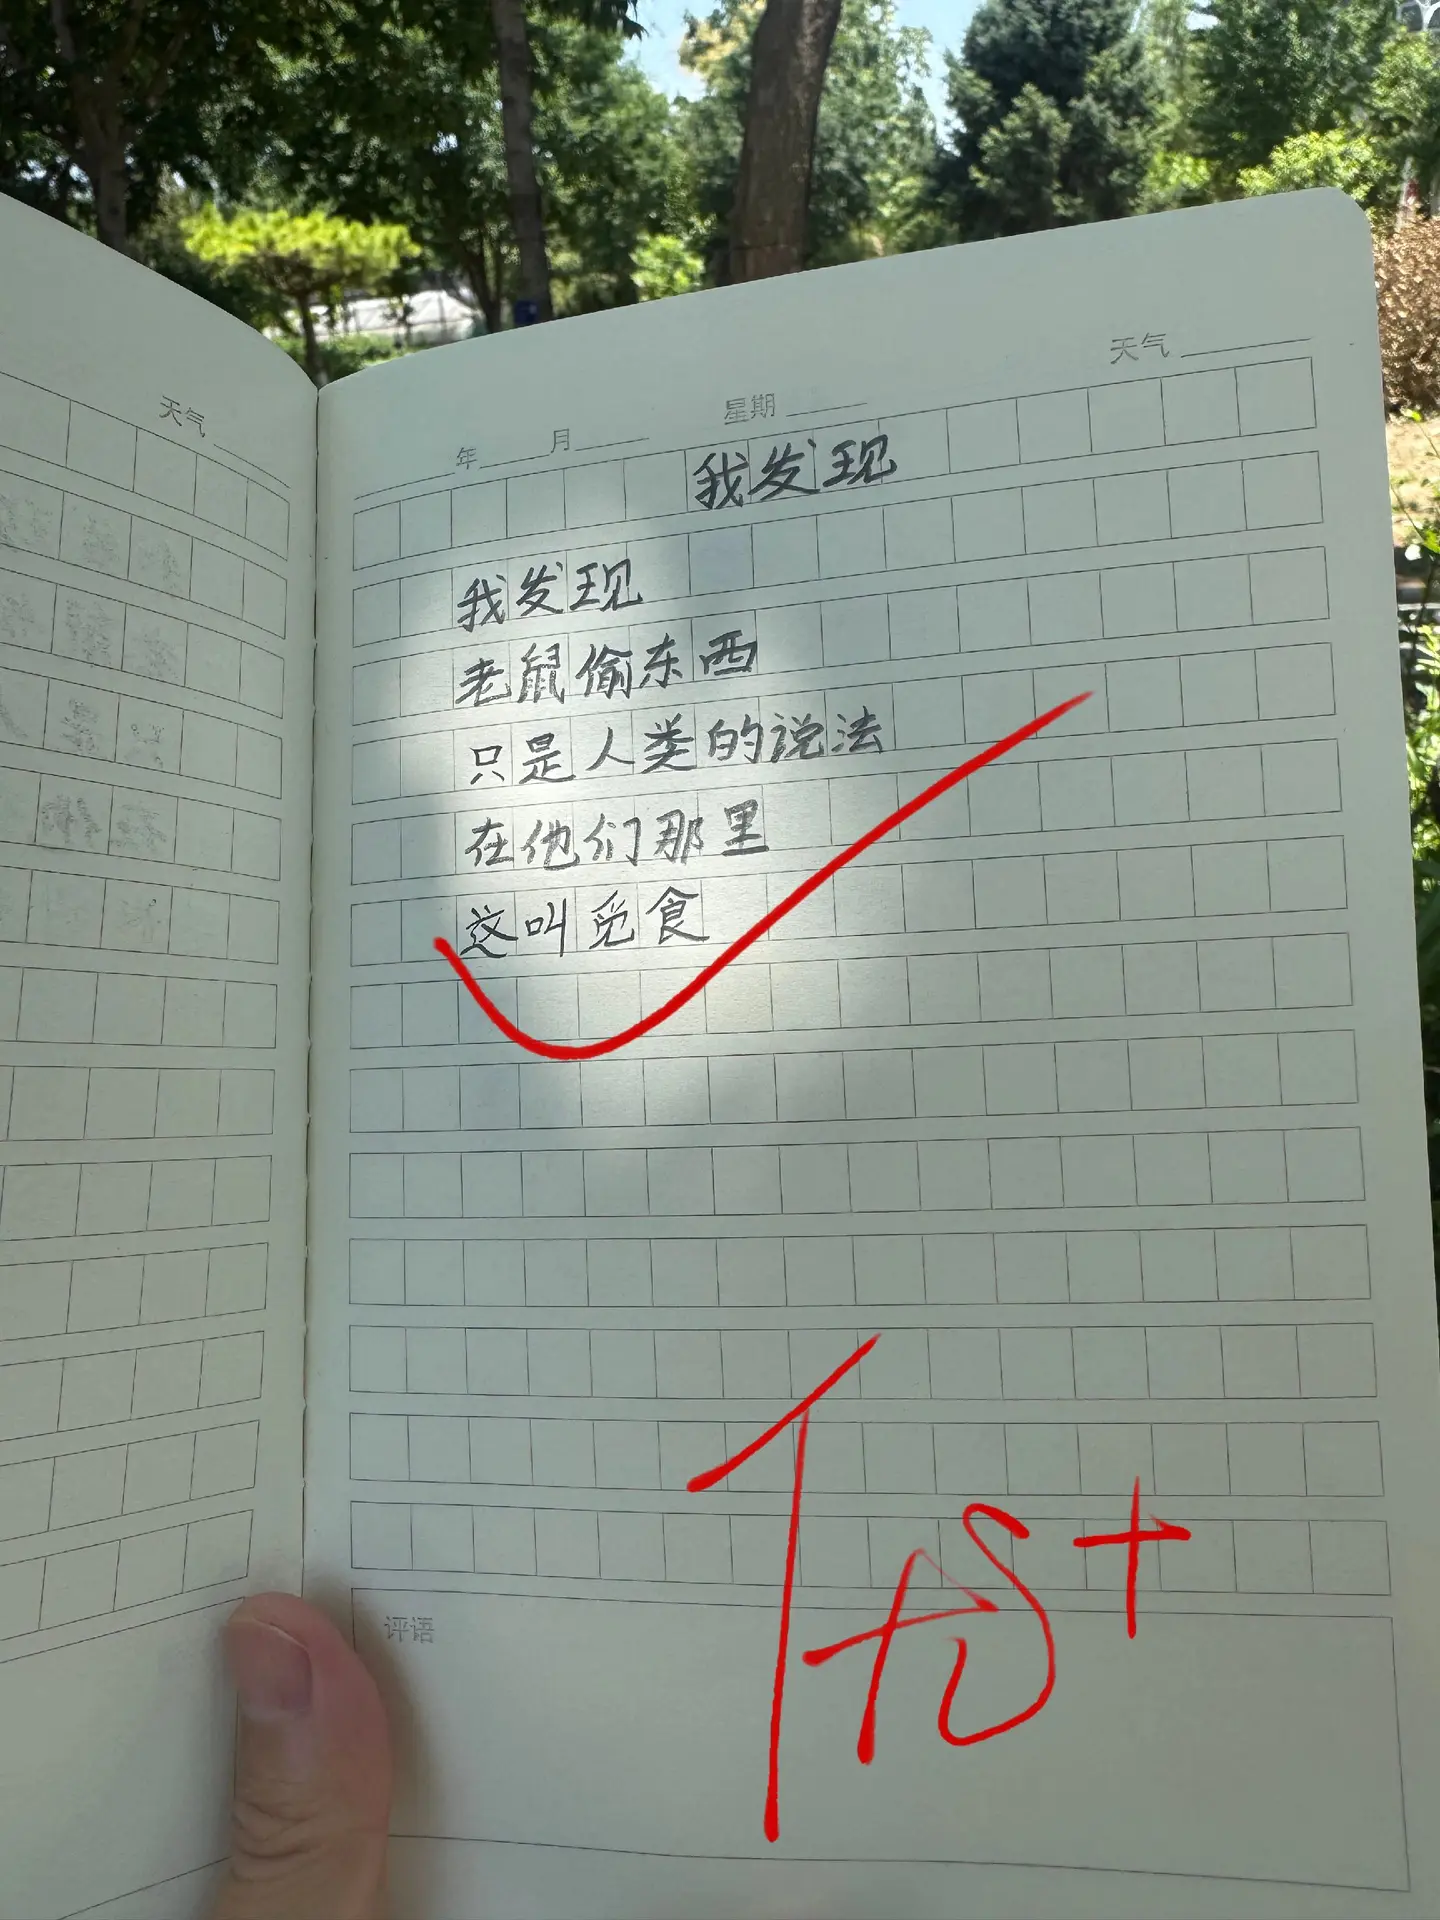 天气
年 月 星期 天气
我发现
我发现
老鼠偷东西
只是人类的说法
在他们那里
这叫觅食
评语